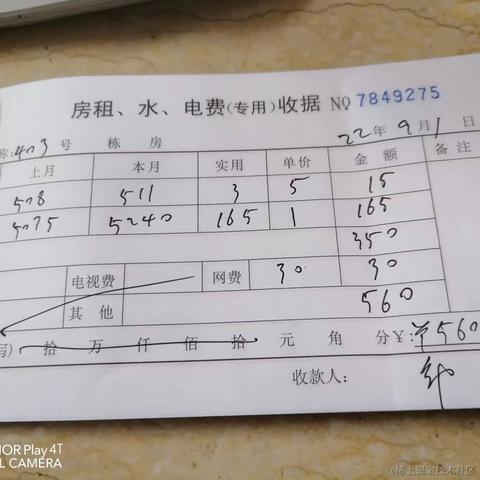 房租、水、电费(专用)收据 NO 7849275
称:403号 栋 房 22年9月1日
上月 本月 实用 单价 金额 备注
508 511 3 5 15
5075 5240 165 1 165
350
电视费 网费 30 30
其他 560
写) 拾 万 仟 佰 拾 元 角 分¥:¥560
收款人:
HONOR Play4T
AL CAMERA
@稀土掘金技术社区